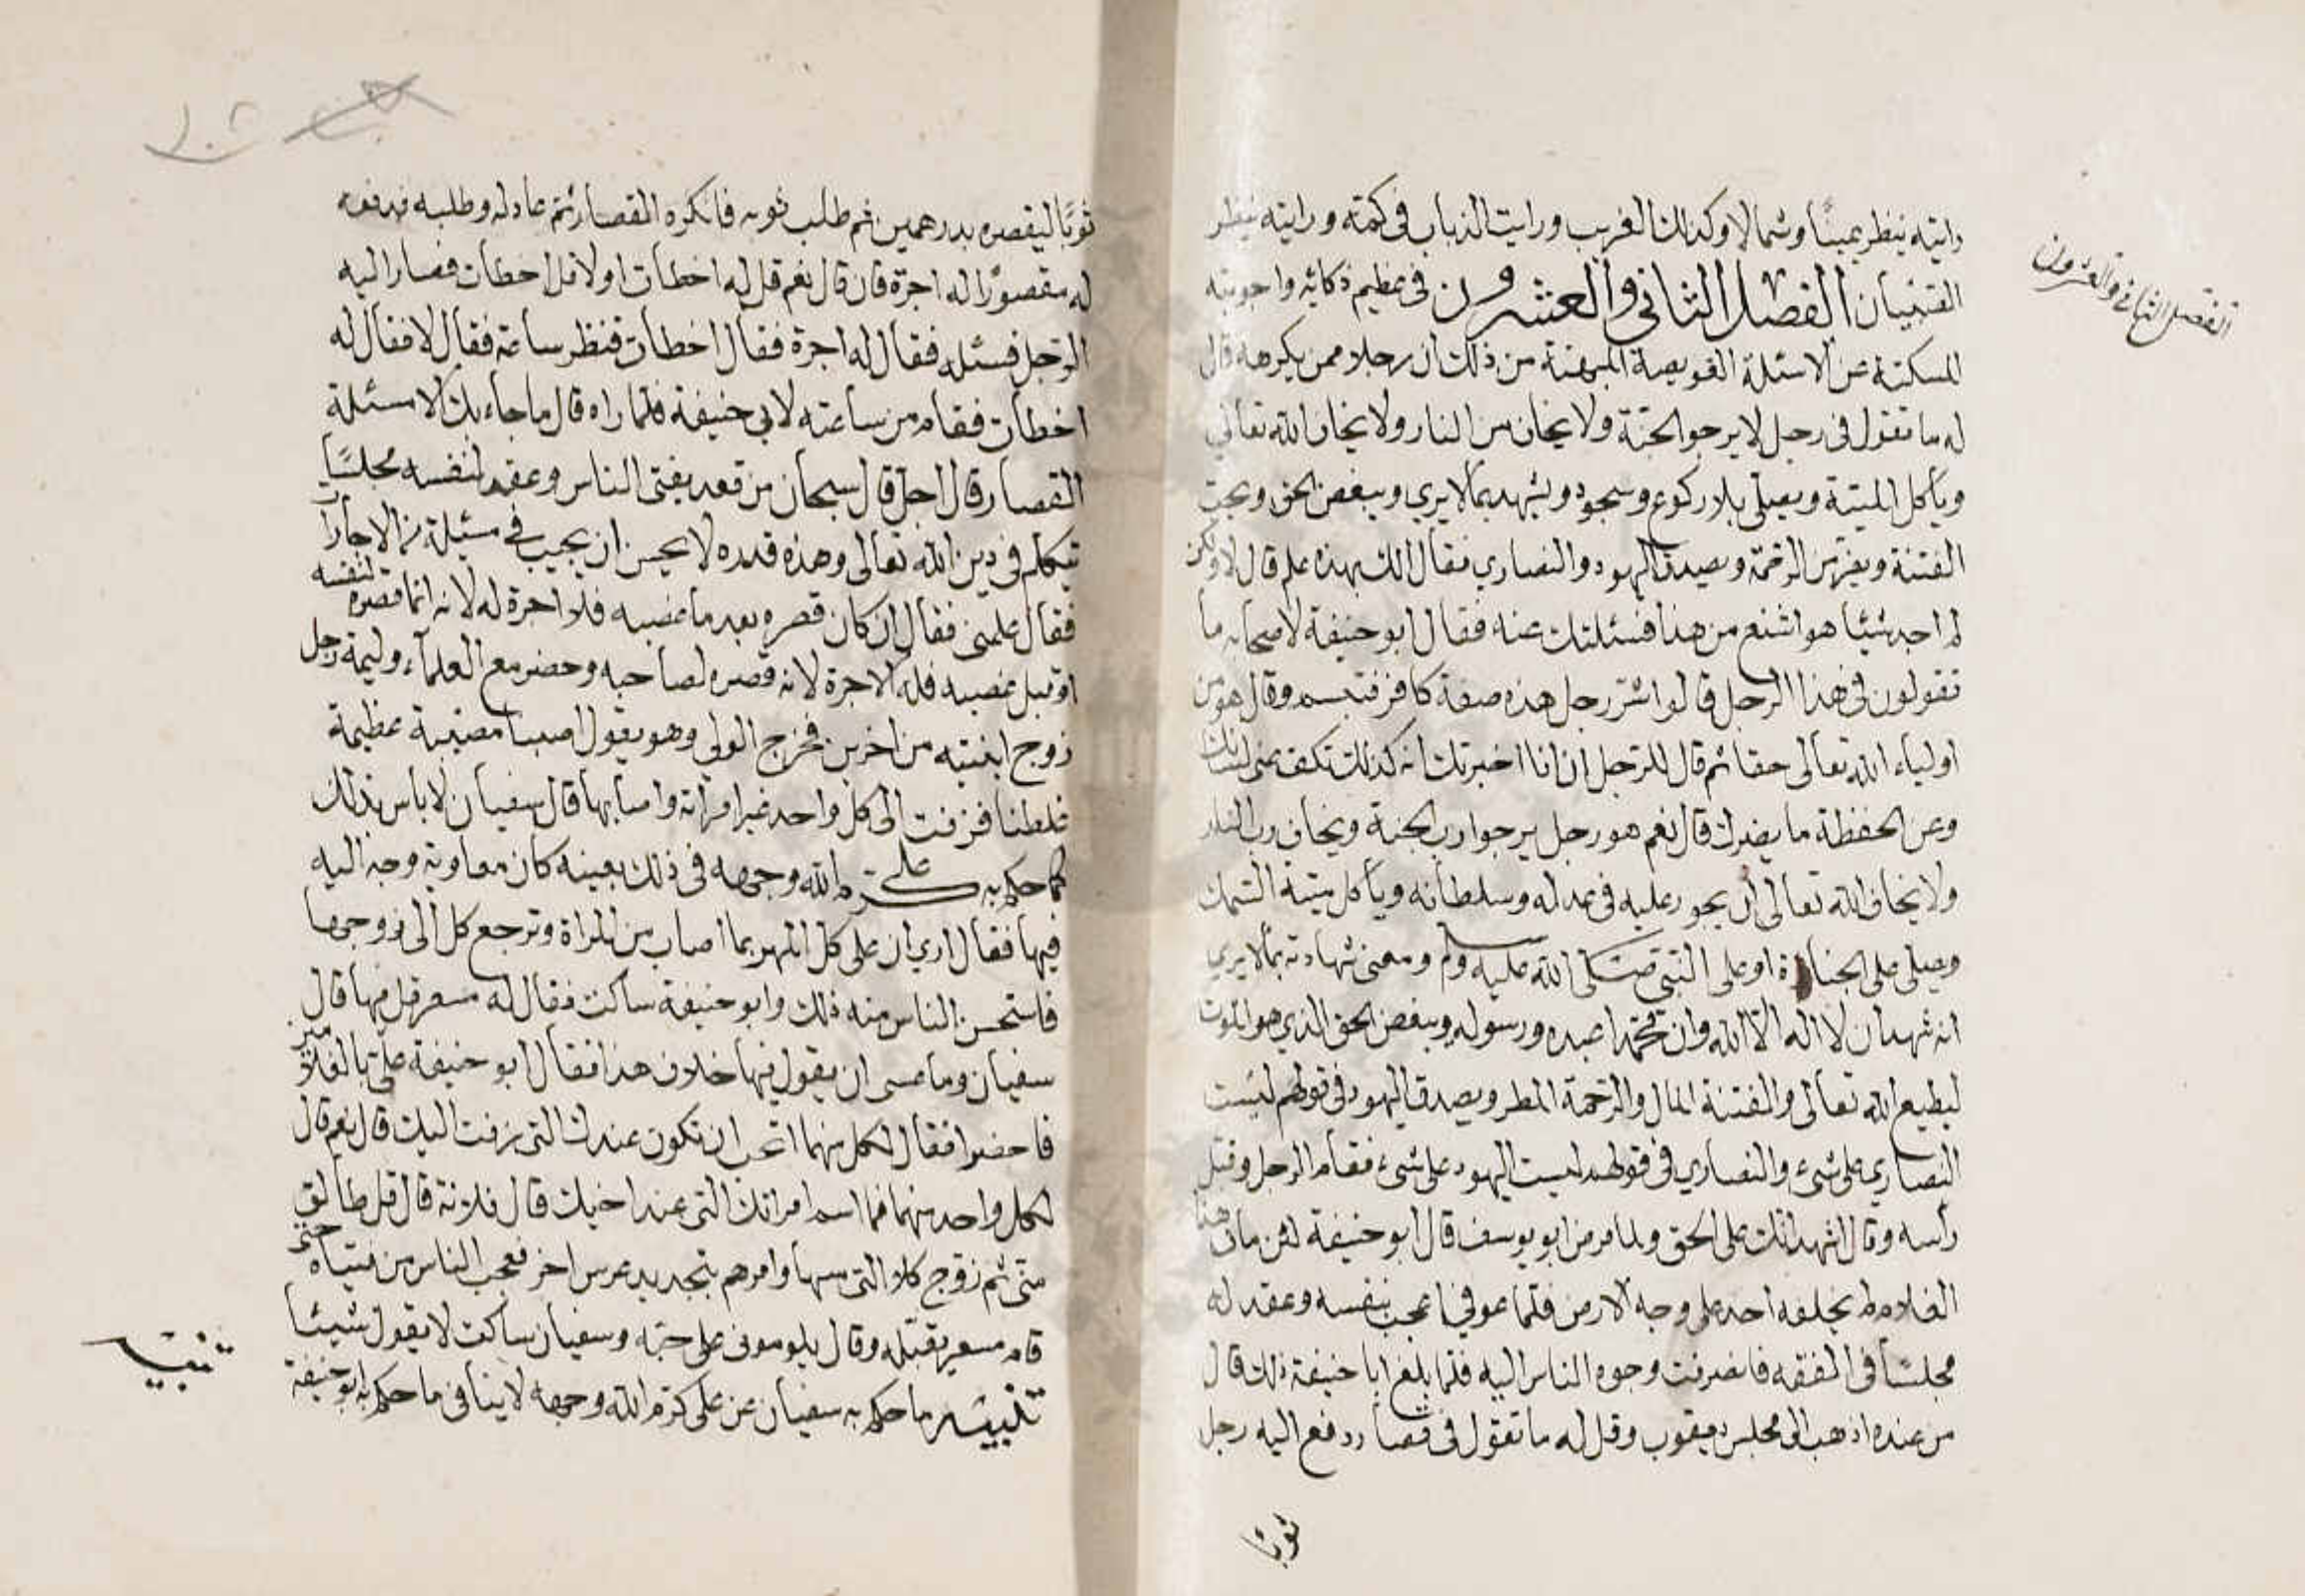 رايته ينظر يمينًا وشمالا وكذلك الغريب ورايت الذباب في كمته ورايته ينظر
الفتيان الفصل الثاني والعشرون في عظيم ذكائه واجوبته
الفصل الثاني والعشرون
المسكتة عن الاسئلة العويصة المبهتة من ذلك ان رجلا ممن يكرهه قال
له ما تقول في رجل لا يرجو الجنة ولا يخاف من النار ولا يخاف الله تعالي
وياكل الميتة ويصلي بلا ركوع وسجود ويشهد بما لا يري ويبغض الحق ويحب
الفتنة ويفر من الرحمة ويصدق اليهود والنصاري فقال الك بهذه علم قال لا ولكن
لم اجد شيئا هو اشنع من هذا فسئلتك عنه فقال ابو حنيفة لاصحابه ما
تقولون في هذا الرجل قالوا شر رجل هذه صفة كافر فتبسم وقال هو من
اولياء الله تعالى حقا ثم قال للرجل ان انا اخبرتك انه كذلك تكف عني لسانك
وعن الحفظة ما يضرك قال نعم هو رجل يرجو رب الجنة ويخاف رب النار
ولا يخاف الله تعالى ان يجور عليه في عدله وسلطانه وياكل ميتة السمك
ويصلي على الجنازة او على النبي صلى الله عليه وسلم ومعنى شهادته بما لا يري
انه شهد ان لا اله الا الله وان محمدا عبده ورسوله ويبغض الحق الذي هو الموت
ليطيع الله تعالى والفتنة المال والرحمة المطر ويصدق اليهود في قولهم ليست
النصاري على شيء والنصاري في قولهم ليست اليهود على شيء فقام الرجل وقبل
رأسه وقال اشهد انك على الحق ولما مرض ابو يوسف قال ابو حنيفة لئن مات هذا
الغلام لم يخلفه احد على وجه الارض فلما عوفي اعجب بنفسه وعقد له
مجلسًا في الفقه فانصرفت وجوه الناس اليه فلما بلغ ابا حنيفة ذلك قال
من عنده اذهب الى مجلس يعقوب وقل له ما تقول في قصار دفع اليه رجل
ثوبًا
ثوبًا ليقصره بدرهمين ثم طلب ثوبه فانكره القصار ثم عاد له وطلبه فدفعه
له مقصورًا اله اجرة فان قال نعم قل له اخطأت او لا قل اخطأت فصار اليه
الرجل فسئله فقال له اجرة فقال اخطأت فنظر ساعة فقال لا فقال له
اخطأت فقام من ساعته لابي حنيفة فلما راه قال ما جاء بك الا مسئلة
القصار قال اجل قال سبحان من قعد يفتي الناس وعقد لنفسه مجلسًا
يتكلم في دين الله تعالى وهذه قدره لا يحسن ان يجيب في مسئلة من الاجارا
فقال علمني فقال ان كان قصره بعد ما غصبه فلا اجرة له لانه انما قصره لنفسه
او قبل غصبه فله الاجرة لانه قصره لصاحبه وحضر مع العلماء وليمة رجل
زوج ابنتيه من اخوين فخرج الولي وهو يقول اصبنا مصيبة عظيمة
غلطنا فزفت الى كل واحد غير امراته واصابها قال سفيان لا باس بذلك
كما حكم به علي كرم الله وجهه في ذلك بعينه كان معاوية وجه اليه
فيها فقال اري ان على كل المهر بما اصاب من المراة وترجع كل الى زوجها
فاستحسن الناس منه ذلك وابو حنيفة ساكت فقال له مسعر قل فيها قال
سفيان وما عسى ان يقول فيها خلاف هذا فقال ابو حنيفة علي بالغلامين
فاحضرا فقال لكل منهما اتحب ان تكون عندك التي زفت اليك قال نعم قال
لكل واحد منهما فما اسم امراتك التي عند اخيك قال فلانة قال قل طالق
مني ثم زوج كلا التي مسها وامرهم بتجديد عرس اخر فعجب الناس من فتياه حتى
قام مسعر يقبله وقال يلوموني على حبه وسفيان ساكت لا يقول شيئا
تنبيه
تنبيه ما حكم به سفيان عن علي كرم الله وجهه لا ينافي ما حكم به ابو حنيفة